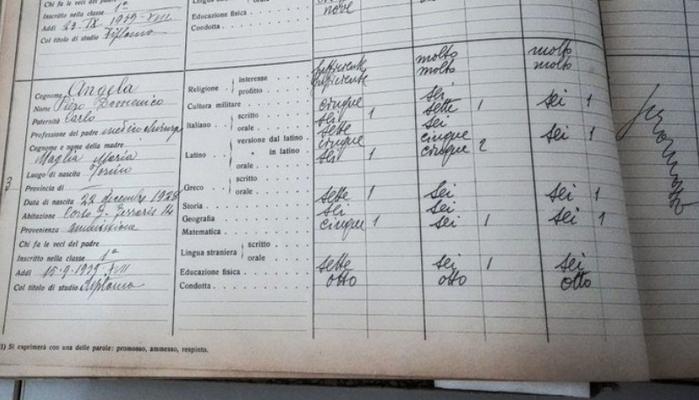 nove
Inscritto nella classe 1ª
Addì 23. IX. 1939-XVII
Educazione fisica
Col titolo di studio Diploma
Condotta
Cognome Angela
Religione interesse sufficiente molto molto
Nome Piero Domenico
profitto sufficiente molto molto
Paternità Carlo
Cultura militare cinque sei
Professione del padre medico chirurgo
Italiano scritto sei 1 sette 1 sei 1
orale sette sei
Cognome e nome della madre
Maglia Maria
Latino versione dal latino cinque cinque sei 1
in latino sei 1 cinque 2
orale
Luogo di nascita Torino
3
Provincia di
Greco scritto
orale
Data di nascita 22 decembre 1928
Storia sette 1 sei sei 1
Abitazione Corso G. Ferraris 14
Geografia sei sei
Provenienza ammissione
Matematica cinque 1 sei 1 sei 1
Chi fa le veci del padre
Lingua straniera scritto
orale
Inscritto nella classe 1ª
Addì 15-9-1939 XVII
Educazione fisica sette sei 1 sei
Col titolo di studio Diploma
Condotta otto otto otto
Promosso
1) Si esprimerà con una delle parole: promosso, ammesso, respinto.